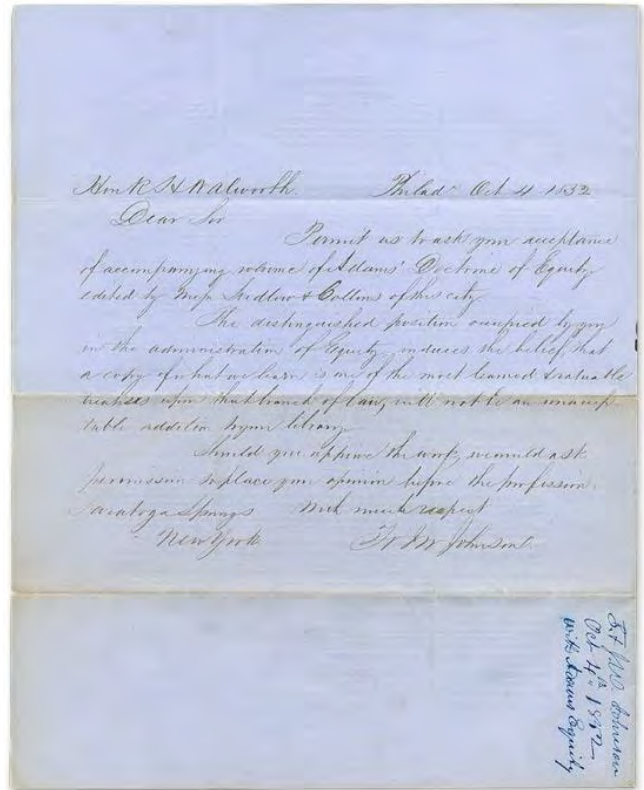 Hon R H Walworth. Philada Oct 4 1852
Dear Sir
Permit us to ask your acceptance
of accompanying volume of Adams' Doctrine of Equity
edited by Mess Ludlow & Collins of this city
The distinguished position occupied by you
in the administration of Equity, induces the belief, that
a copy of what we learn is one of the most learned & valuable
treatises upon that branch of law, will not be an unaccep
table addition to your library
Should you approve the work, we would ask
permission to place your opinion before the profession.
Saratoga Springs With much respect
New York T & J W Johnson
T & J W Johnson
Oct 4th 1852
with Adams Equity